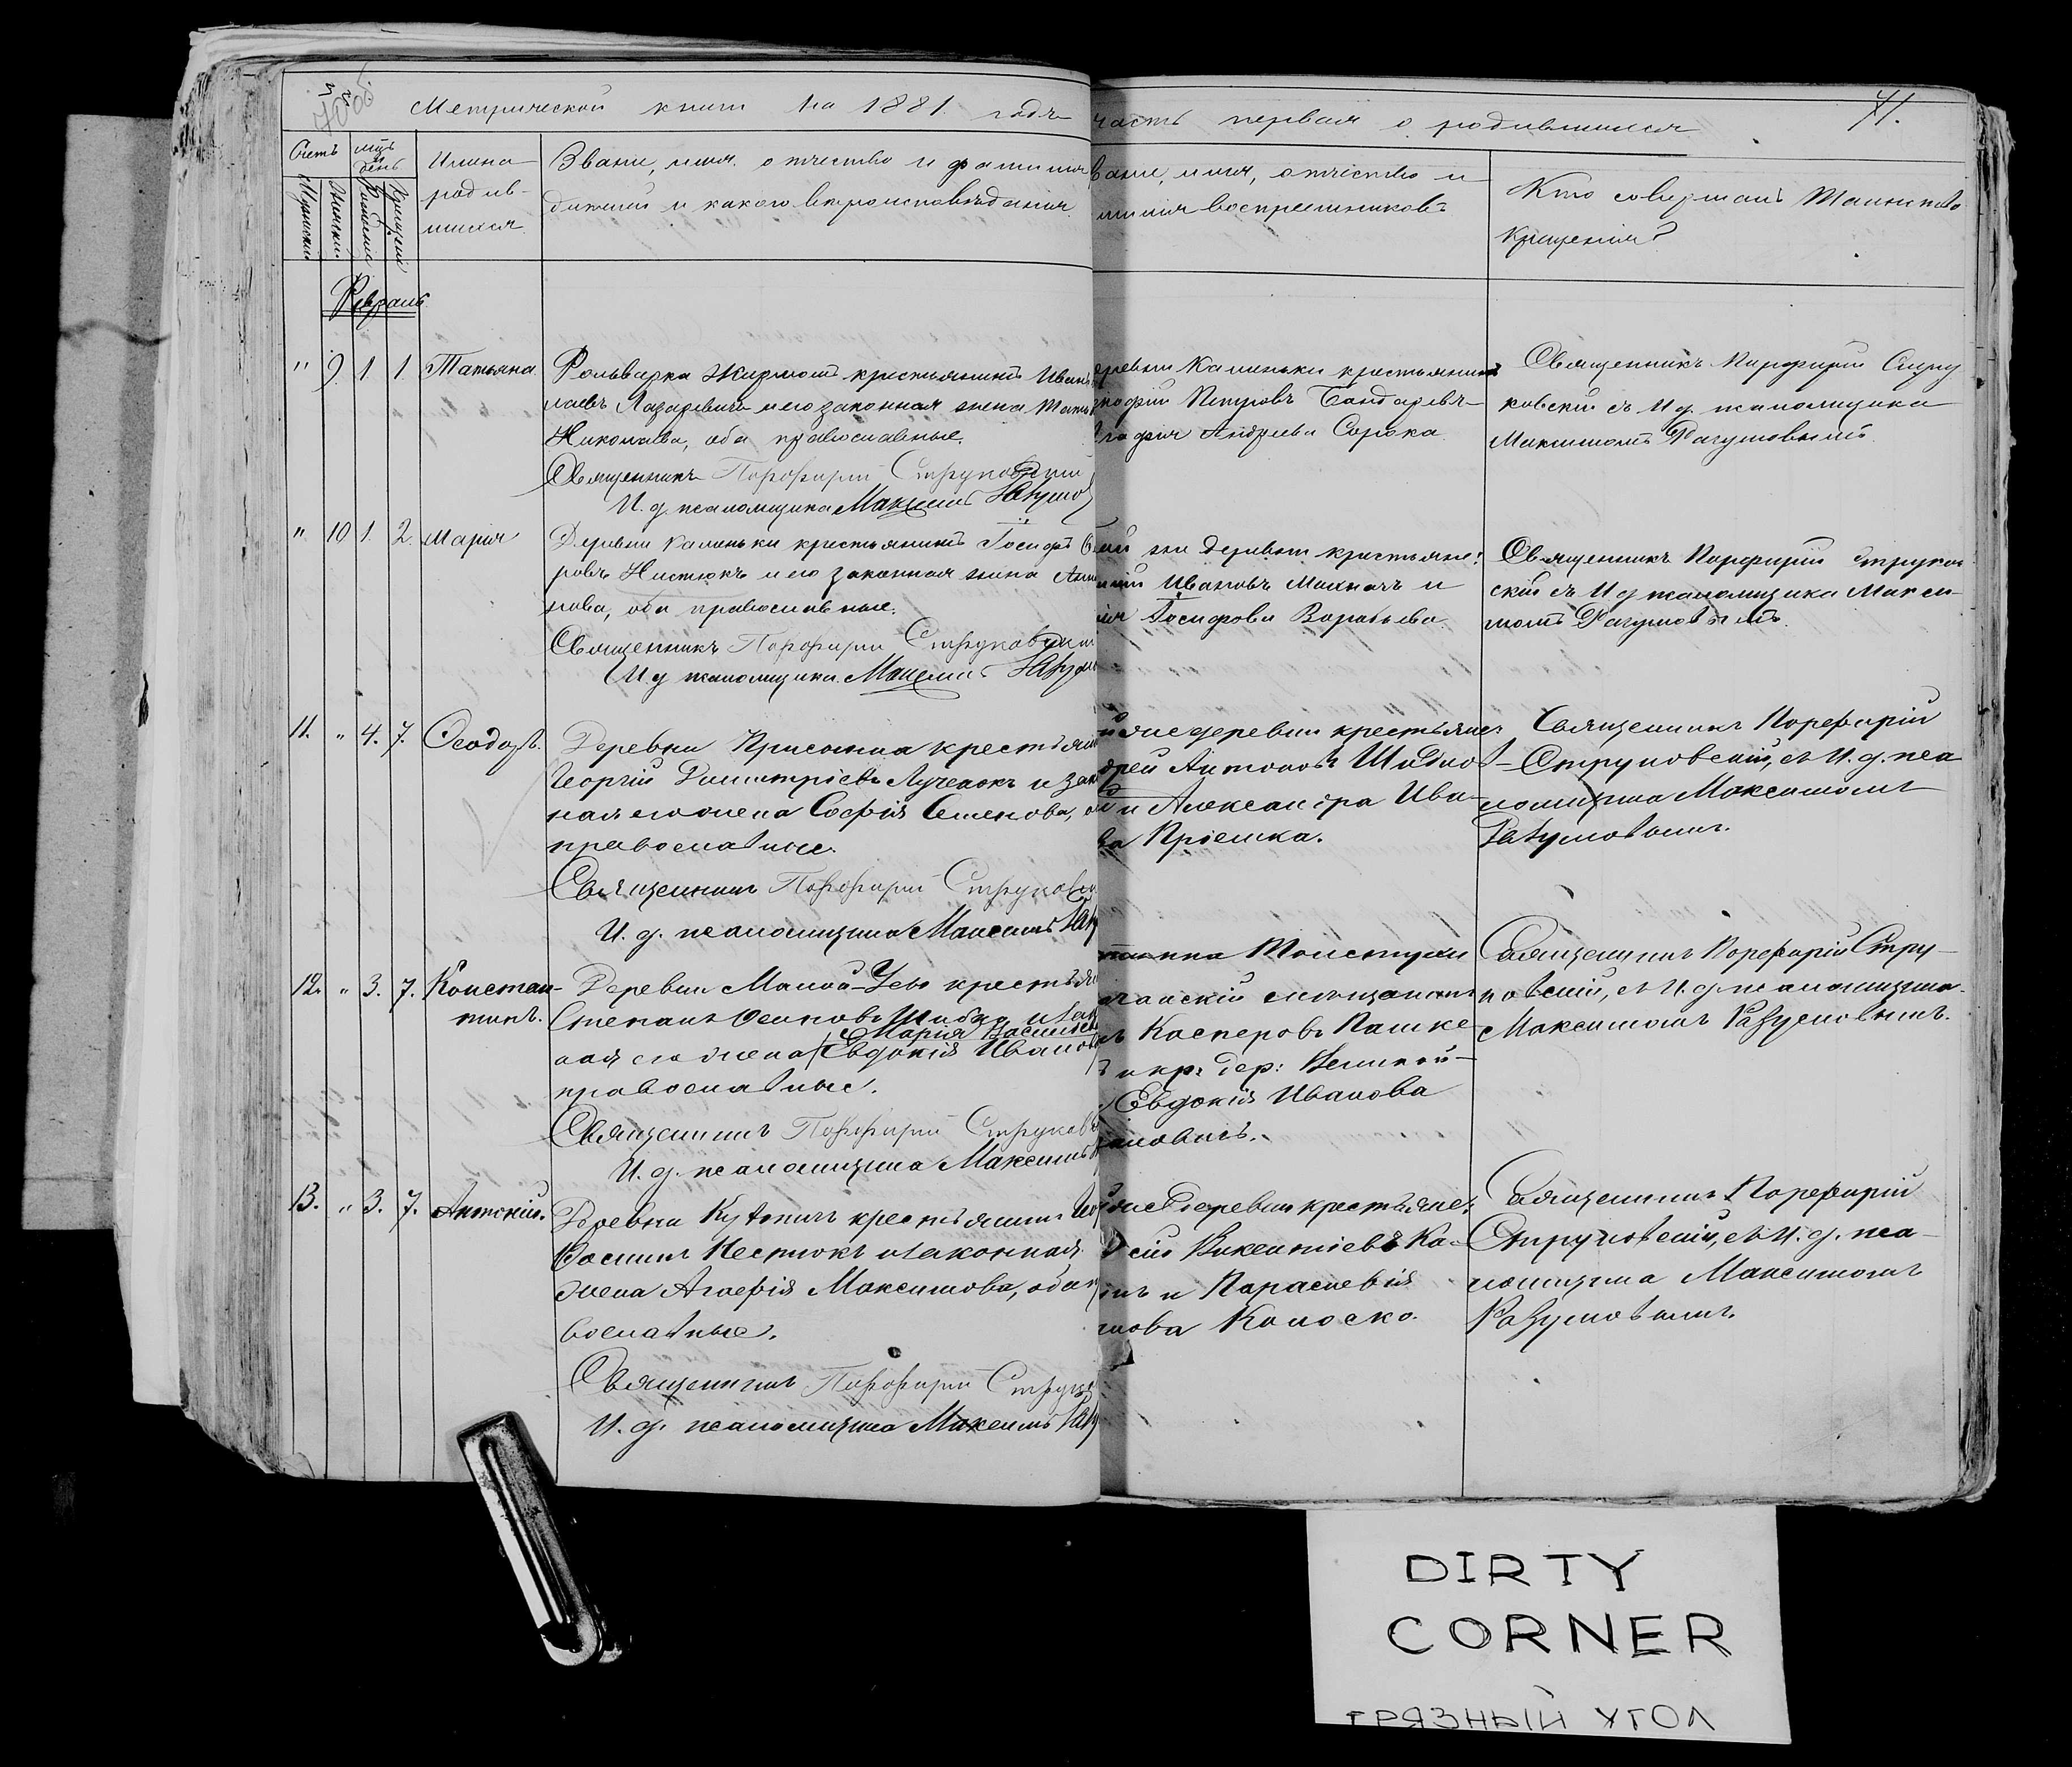 Метрической книги на 1881 годъ
часть первая о родившихся
41.
Счетъ
мцъ и день
Имена родив-
шихся
Званіе, имя, отчество и фамилія
дителей и какого вѣроисповѣданія.
Званіе, имя, отчество и
миліи воспріемниковъ
Кто совершалъ Таинство
Крещенія?
Мужескій
Женскій
Рожденія
Крещенія
Февраль
" 9. 1 1. Татьяна.
Фольварка крестьянинъ Иванъ
Лазаревичъ и его законная жена
Николаева, оба православные.
Священникъ Порфирій Струковскій
И. д. псаломщика Максимъ
деревни Каменьки крестьянинъ
Петровъ Бондаревъ
Андреева Сорока
Священникъ Порфирій Стру
ковскій съ И д. псаломщика
Максимомъ Разумовымъ
" 10 1. 2. Марія
Деревни Каменьки крестьянинъ Іосифъ
ровъ Нестюкъ и его законная жена
нова, оба православные.
Священникъ Порфирій Струковскій
И. д псаломщика Максимъ
же деревни крестьяне:
Ивановъ и
Іосифова Воробьева.
Священникъ Порфирій Струков
скій съ И д псаломщика Макси-
момъ Разумовымъ.
11. " 4. 7. Ѳеодоръ.
Деревни крестьян
Георгій Димитріевъ Лученокъ и зак
ная его жена Софія Семенова,
православные.
Священникъ Порфирій Струковск
И. д. псаломщика Максимъ Раз
же деревни крестьяне:
дрей Антоновъ
и Александра Ива-
ва Пріемка.
Священникъ Порфирій
Струковскій, съ И. д. пса
ломщика Максимомъ
Разумовымъ.
12. " 3. 7. Констан-
тинъ.
Деревни Малой-Усы крестьян
Степанъ Осиповъ Шибко и зак
Марія Василье
ная его жена Евдокія Иванов
православные.
Священникъ Порфирій Струков
И. д. псаломщика Максимъ
мѣщанинъ
Касперовъ Пашке
и кр: дер: Великой-
Евдокія Иванова
Священникъ Порфирій Стру-
ковскій, съ И. д. псаломщика
Максимомъ Разумовымъ.
13. " 3. 7. Антоній.
Деревни крестьянинъ
Нестюкъ и законная
жена Агафія Максимова, оба
вославные.
Священникъ Порфирій Струк
И. д. псаломщика Максимъ Раз
же деревни крестьяне:
Викентіевъ Ка-
и Параскевія
мова Колоско.
Священникъ Порфирій
Струковскій, съ И. д. пса-
ломщика Максимомъ
Разумовымъ.
DIRTY
CORNER
ГРЯЗНЫЙ УГОЛ